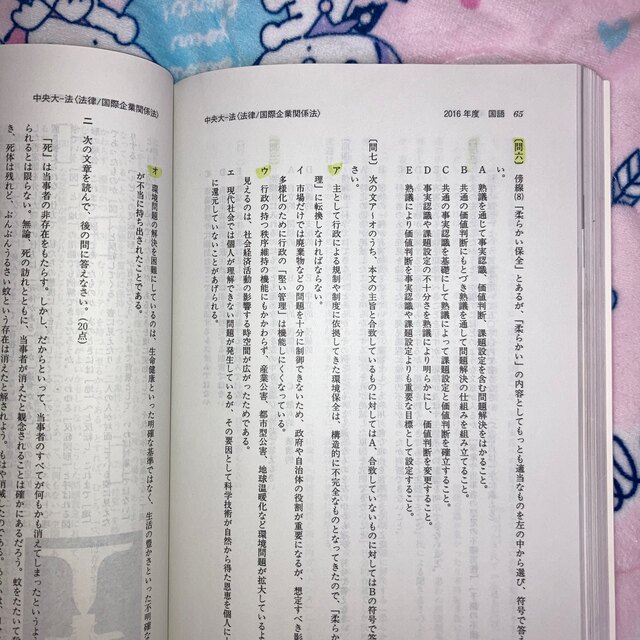 中央大-法〈法律/国際企業関係法〉
2016年度 国語 65
〔問六〕 傍線(8)「柔らかい保全」とあるが、「柔らかい」の内容としてもっとも適当なものを左の中から選び、符号で答え
い。
A 熟議を通じて事実認識、価値判断、課題設定を含む問題解決をはかること。
B 共通の価値判断にもとづき熟議を通して問題解決の仕組みを組み立てること。
C 共通の事実認識を基礎にして熟議によって課題設定と価値判断を確立すること。
D 事実認識や課題設定の不十分さを熟議により明らかにし、価値判断を変更すること。
E 熟議により価値判断を事実認識や課題設定よりも重要な目標として設定すること。
〔問七〕 次の文ア～オのうち、本文の主旨と合致しているものに対してはA、合致していないものに対してはBの符号で答
さい。
ア 主として行政による規制や制度に依拠してきた環境保全は、構造的に不完全なものとなってきたので、「柔らか
理」に転換しなければならない。
イ 市場だけでは廃棄物などの問題を十分に制御できないため、政府や自治体の役割が重要になるが、想定すべき影
多様化のために行政の「堅い管理」は機能しにくくなっている。
ウ 行政の持つ秩序維持の機能にもかかわらず、産業公害、都市型公害、地球温暖化など環境問題が拡大しているよ
見えるのは、社会経済活動の影響する時空間が広がったためである。
エ 現代社会では個人が理解できない問題が発生しているが、その要因として科学技術が自然から得た恩恵を個人に
に還元していないことがあげられる。
中央大-法〈法律/国際企業関係法〉
オ 環境問題の解決を困難にしているのは、生命健康といった明確な基準ではなく、生活の豊かさといった不明確な
が不当に持ち出されたことである。
二 次の文章を読んで、後の問に答えなさい。(20点)
「死」は当事者の非存在をもたらす。しかし、だからといって、当事者のすべてが何もかも消えてしまったというよ
られるとは限らない。無論、死の訪れとともに、当事者が消えたと観念されることは確かにあるだろう。蚊をたたいて
き、死体は残れど、ぶんぶんうるさい蚊という存在は消えたと解されよう。もはや消滅したのである。